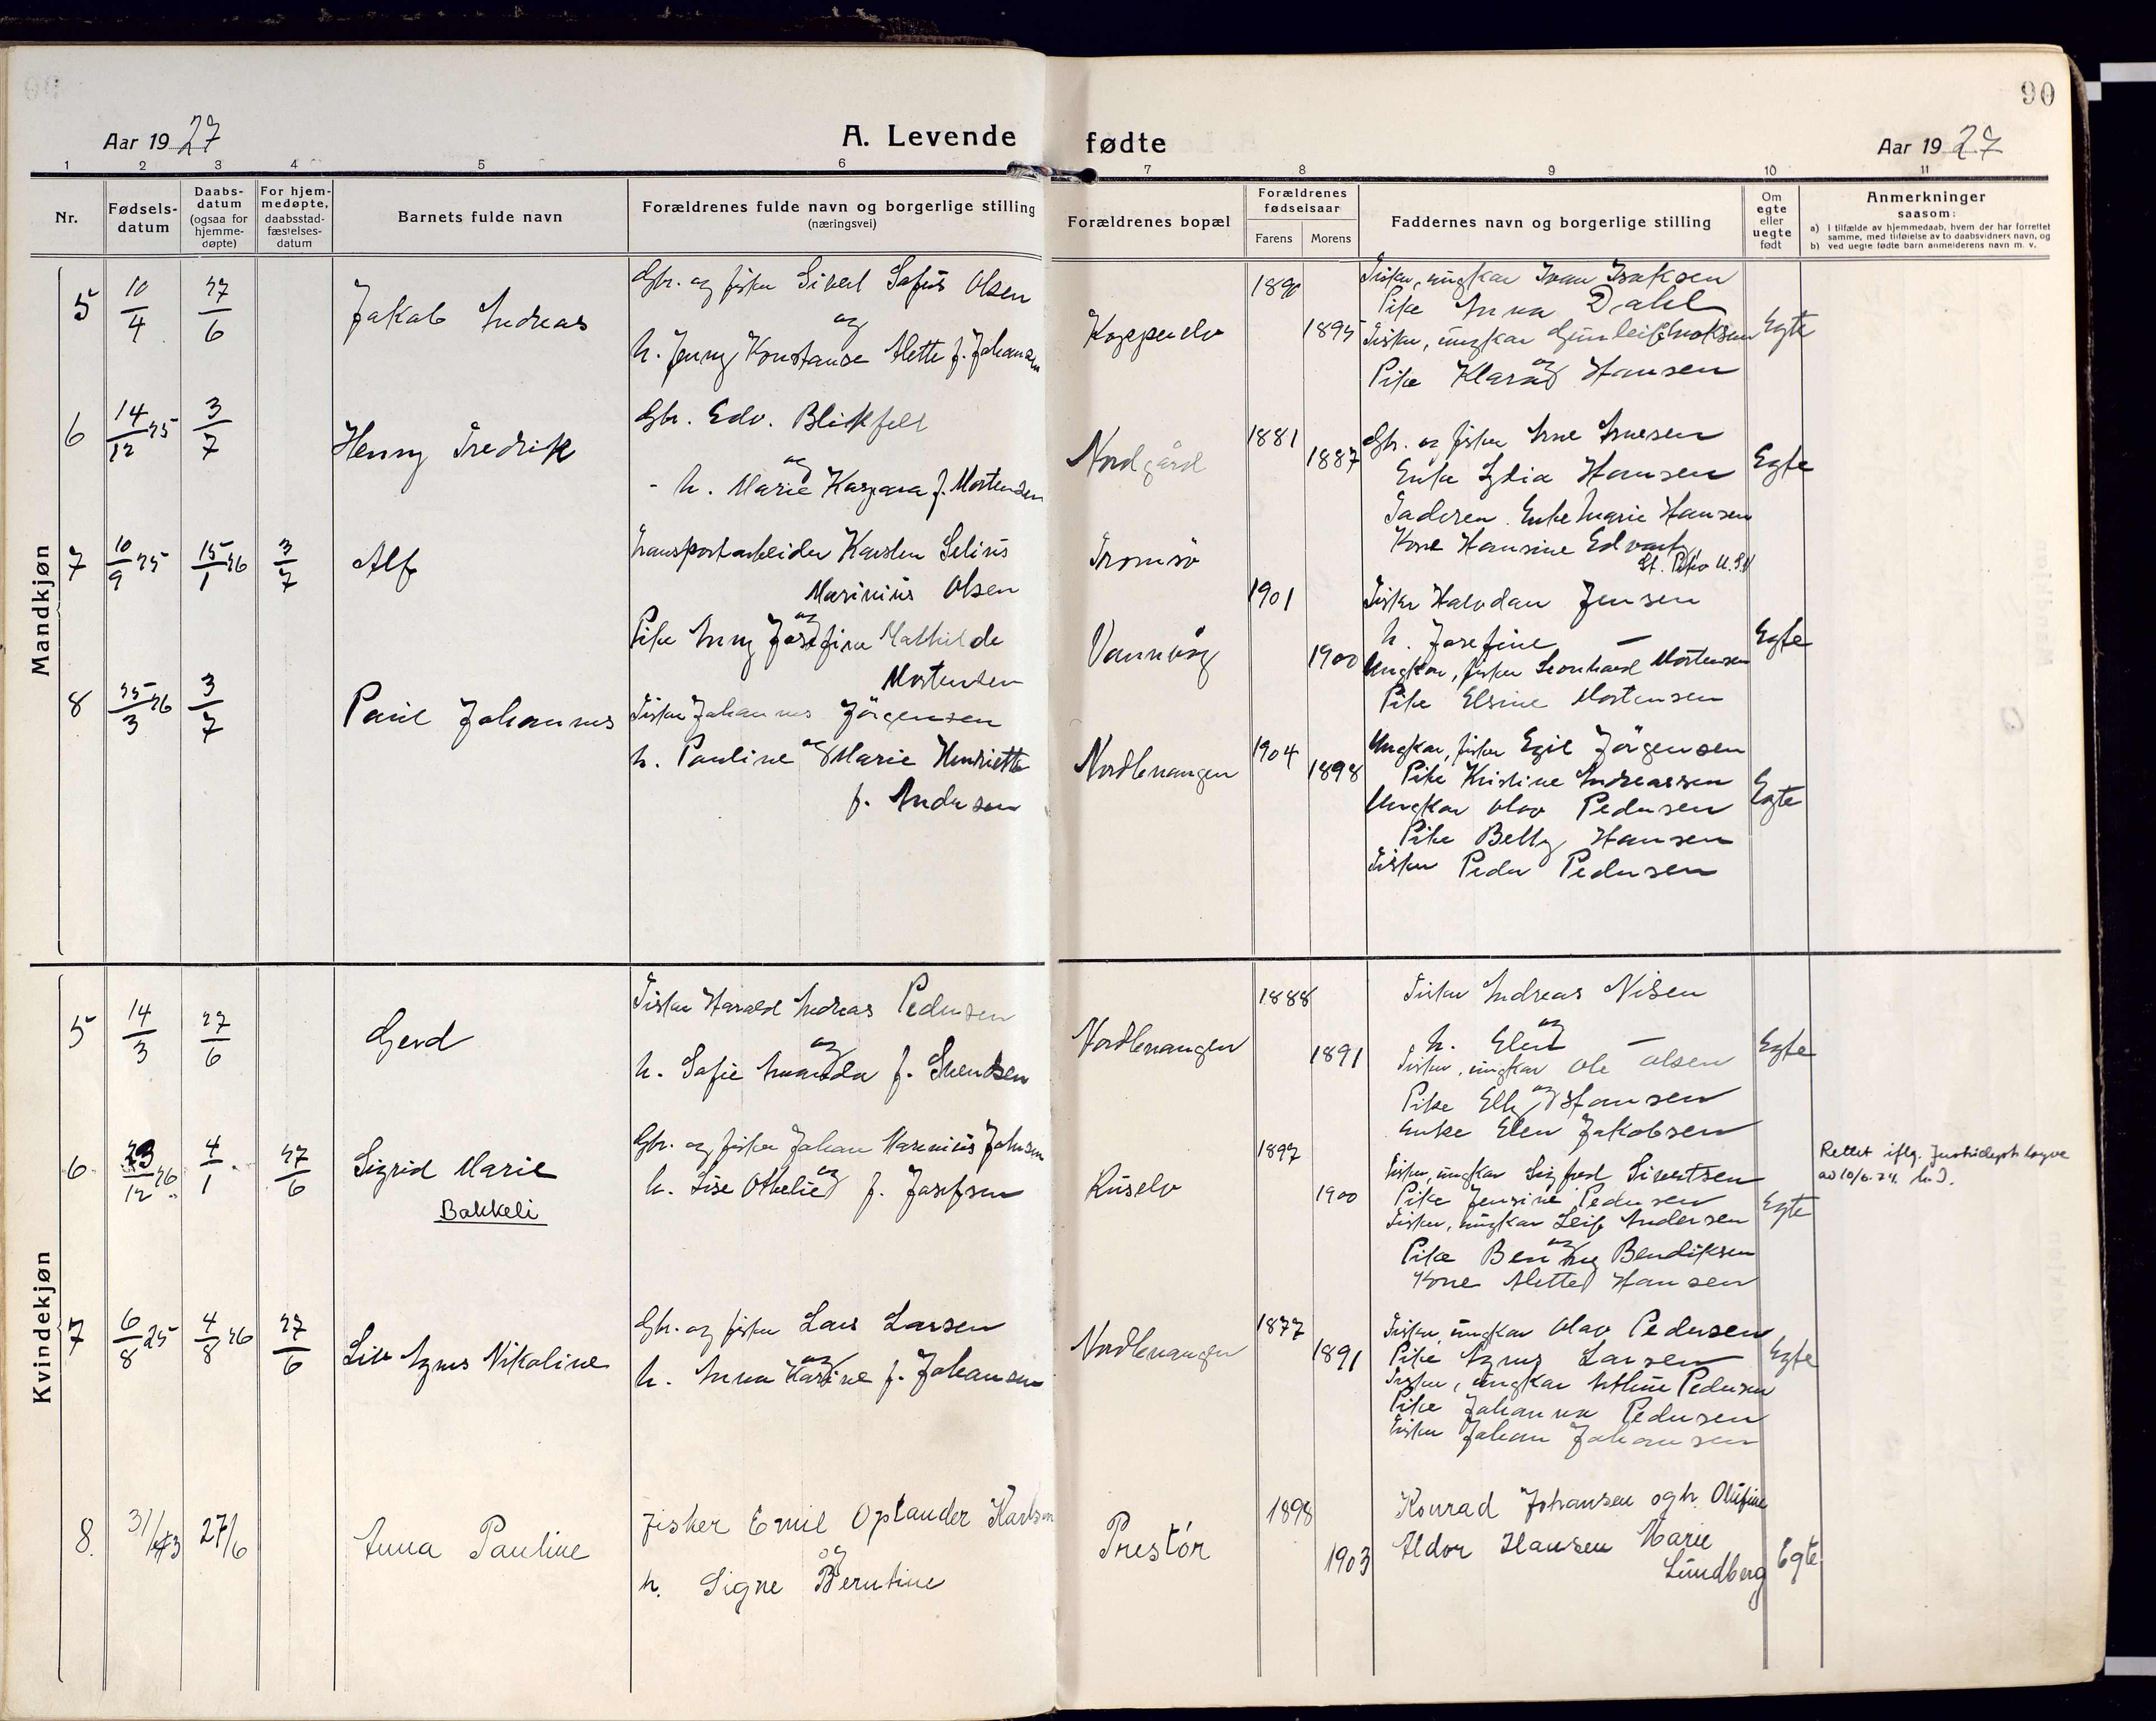 90
Aar 1927
A. Levende fødte
Aar 1927
1 2 3 4 5 6 7 8 9 10 11
Nr.
Fødsels-
datum
Daabs-
datum
(ogsaa for
hjemme-
døpte)
For hjem-
medøpte,
daabsstad-
fæstelses-
datum
Barnets fulde navn
Forældrenes fulde navn og borgerlige stilling
(næringsvei)
Forældrenes bopæl
Forældrenes
fødselsaar
Farens Morens
Faddernes navn og borgerlige stilling
Om
egte
eller
uegte
født
Anmerkninger
saasom:
a) i tilfælde av hjemmedaab, hvem der har forrettet
samme, med tilføielse av to daabsvidners navn, og
b) ved uegte fødte barn anmelderens navn m. v.
Mandkjøn
5 10/4 27/6
Jakob Andreas
Gbr. og fisker Sivert Sofus Olsen
og
h. Jenny Konstanse Alette f. Johansen
Koppenelv
1890
1895
Fisker, ungkar Ivan Isaksen
Pike Anna Dahl
Fisker, ungkar Gunleif Enoksen
og
Pike Klara Hansen
Egte
6 14/12 25 3/7
Henny Fredrik
Gbr. Edv. Blikfelt
og
- h. Marie Kaspara f. Mortensen
Nordgård
1881
1887
Gbr. og fisker Arne Arnesen
Enke Lydia Hansen
Faderen. Enke Marie Hansen
Kone Hansine Edvards
Egte
7 10/9 25 15/1 26 3/7
Alf
Transportarbeider Karsten Selius
Marinius Olsen
og
Pike Anny Josefine Mathilde
Mortensen
Tromsø
Vannvåg
1901
1900
Fisker Halvdan Jensen
h. Josefine —
Ungkar, fisker Leonhard Mortensen
Pike Elsine Mortensen
Egte
8 25/3 26 3/7
Paul Johannes
Fisker Johannes Jörgensen
og
h. Pauline Marie Henriette
f. Andersen
Nordlenangen
1904
1898
Ungkar, fisker Egil Jörgensen
Pike Kristine Andreassen
Ungkar Olav Pedersen
Pike Betty Hansen
Fisker Peder Pedersen
Egte
Kvindekjøn
5 14/3 27/6
Gerd
Fisker Harald Andreas Pedersen
og
h. Sofie Amanda f. Svendsen
Nordlenangen
1888
1891
Fisker Andreas Nilsen
og
h. Elen —
Fisker, ungkar Ole Olsen
og
Pike Elly Hansen
Enke Elen Jakobsen
Egte
6 23/12 26 4/1 27/6
Sigrid Marie
Bakkeli
Gbr. og fisker Johan Marinius Johnsen
og
h. Lise Othelie f. Josefsen
Ruselv
1897
1900
Fisker, ungkar Sigfred Sivertsen
Pike Jensine Pedersen
Fisker, ungkar Leif Andersen
og
Pike Benny Bendiksen
Kone Alette Hansen
Egte
Rettet iflg.
7 6/8 25 4/8 26 27/6
Liv Agnes Nikoline
Gbr. og fisker Lars Larsen
og
h. Anna Karine f. Johansen
Nordlenangen
1877
1891
Fisker, ungkar Olav Pedersen
Pike Agnes Larsen
Fisker, ungkar Arthur Pedersen
Pike Johanna Pedersen
Fisker Johan Johansen
Egte
8. 31/3 27/6
Anna Pauline
Fisker Emil Oplander Karlsen
og
h. Signe Berntine
Prestör
1898
1903
Konrad Johansen og h. Olufine
Aldor Hansen Marie
Lundberg
Egte